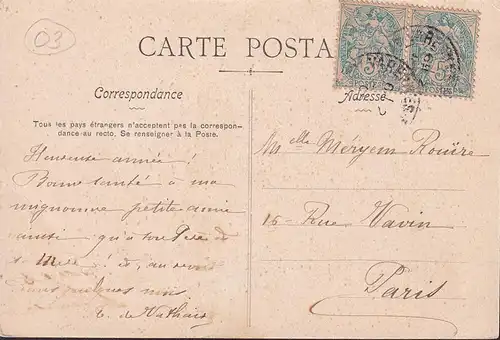 03
CARTE POSTA
Correspondance
Adresse
Tous les pays étrangers n'acceptent pas la correspon-
dance au recto. Se renseigner à la Poste.
Heureuse année!
Bonne santé à ma
mignonne petite amie
ainsi qu'à ton Père
Mère! au
quelques mois
de
Mlle Méryem Rouïre
15 - Rue Vavin
Paris